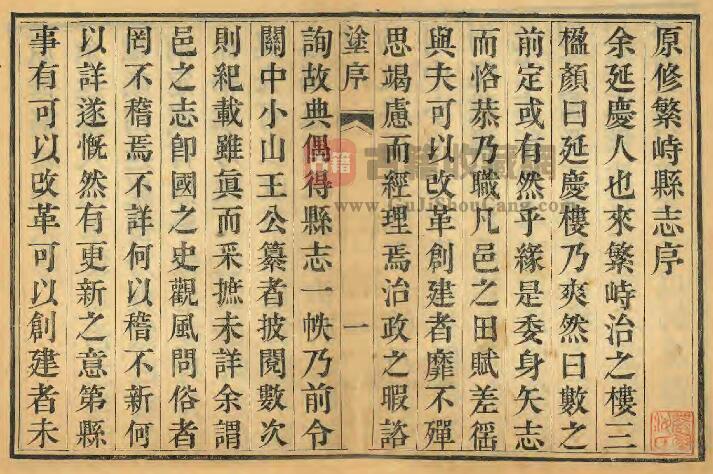 原修繁峙縣志序
余延慶人也來繁峙治之樓三
楹顏曰延慶樓乃爽然曰數之
前定或有然乎緣是委身矢志
而恪恭乃職凡邑之田賦差徭
與夫可以改革創建者靡不殫
思竭慮而經理焉治政之暇諮
塗序 一
詢故典偶得縣志一帙乃前令
關中小山王公纂者披閱數次
則紀載雖眞而采摭未詳余謂
邑之志卽國之史觀風問俗者
罔不稽焉不詳何以稽不新何
以詳遂慨然有更新之意第縣
事有可以改革可以創建者未
古籍
古籍收藏网
www.GuJiShouCang.com